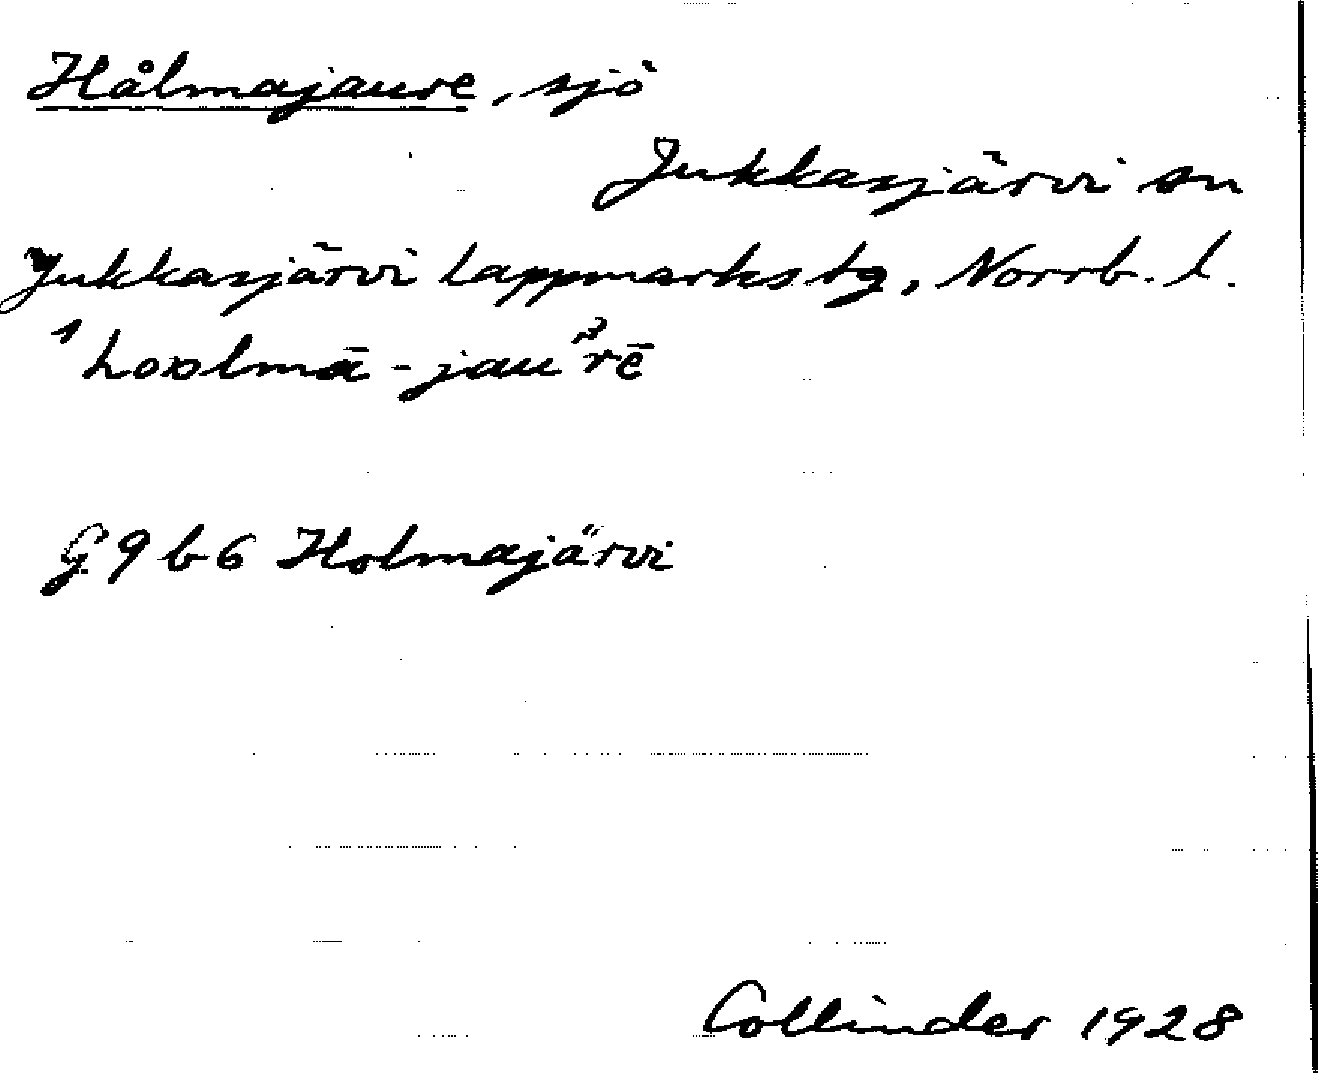 Hålmajaure, sjö
Jukkasjärvi sn
Jukkasjärvi lappmarks tg, Norrb. l.
G. 9 b 6 Holmajärvi
Collinder 1928